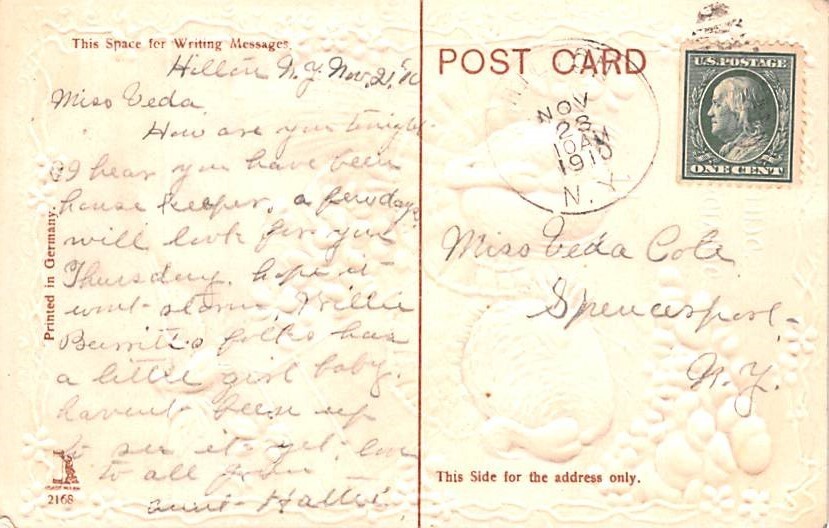 This Space for Writing Messages.
Hilton N.Y. Nov. 21,
Miss Veda
How are you tonight
I hear you have been
house keeper, a few days
will look for you
Thursday. hope it
wont storm. Willie
Burritts folks has
a little girl baby.
havent been up
to see it yet, love
to all from
aunt Hattie,
Printed in Germany.
2168
POST CARD
NOV
28
10 AM
1910
N.Y.
U.S. POSTAGE
ONE CENT
Miss Veda Cole
Spencerport
N.Y.
This Side for the address only.